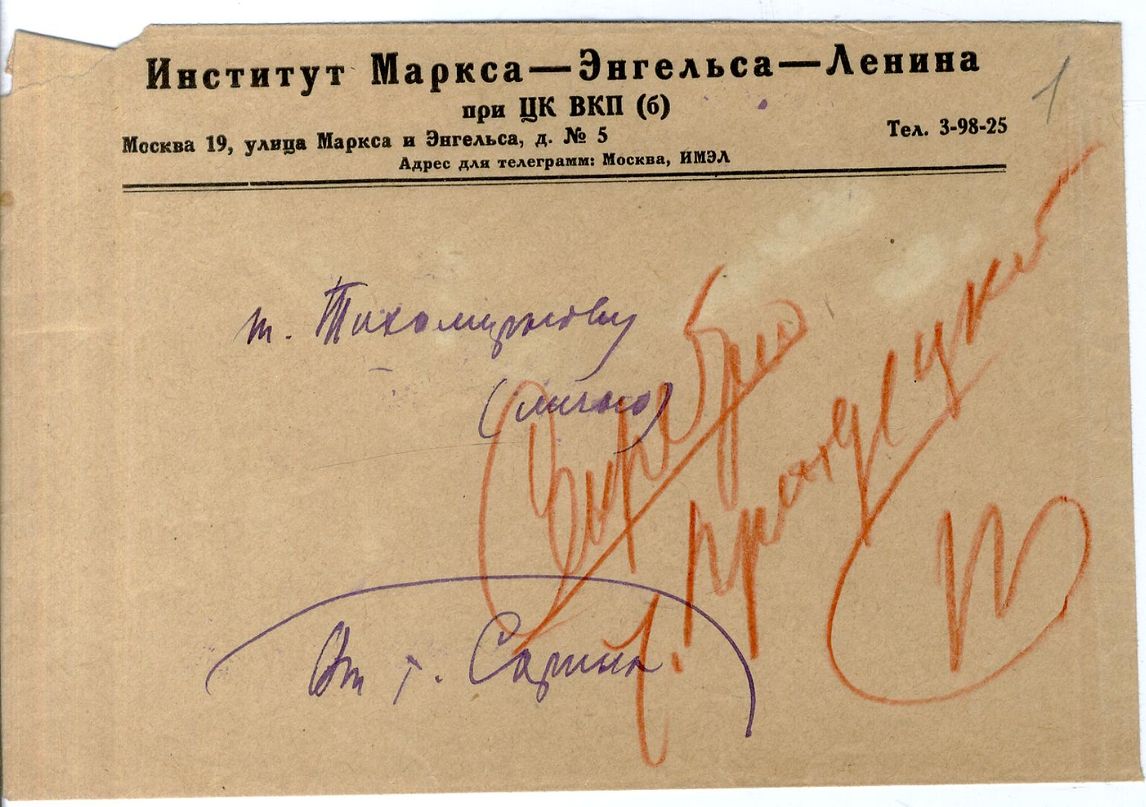 Институт Маркса—Энгельса—Ленина
при ЦК ВКП (б)
Москва 19, улица Маркса и Энгельса, д. № 5
Тел. 3-98-25
Адрес для телеграмм: Москва, ИМЭЛ
1
т. Тихомирнову
(лично)
От т. Сорина